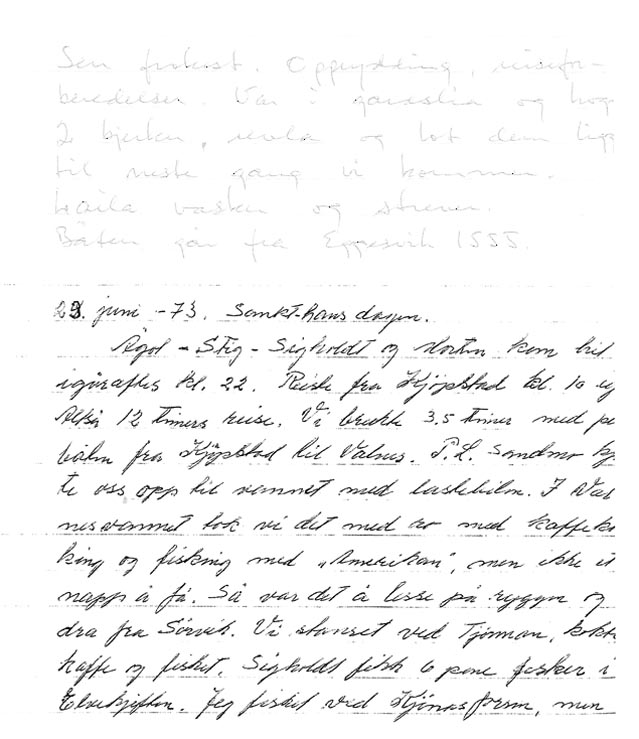 Sen frokost. Opprydding, reisefor-
beredelser. Var i og hog
2 bjerker, og lot dem ligg
til neste gang vi kommer.
Laila vasker og strever.
Båten går fra Eggesvik 1555.
23. juni -73. Sankt-hans dagen.
- Stig - Sigholdt og Morten kom hit
igåraftes kl. 22. Reiste fra Kjöpstad kl. 10 ig
Altså 12 timers reise. Vi brukte 3,5 timer med pe
bilen fra Kjöpstad til Valnes. P.L. Sandmo kj
te oss opp til vannet med lastebilen. I Val
nesvannet tok vi det med ro med kaffeko
king og fisking med "Amerikan", men ikke et
napp å få. Så var det å lesse på ryggen og
dra fra Sörvik. Vi stanset ved Tjönnan, kokte
kaffe og fisket. Sigholdt fikk 6 pene fisker i
Elvekjeften. Jeg fisket ved men